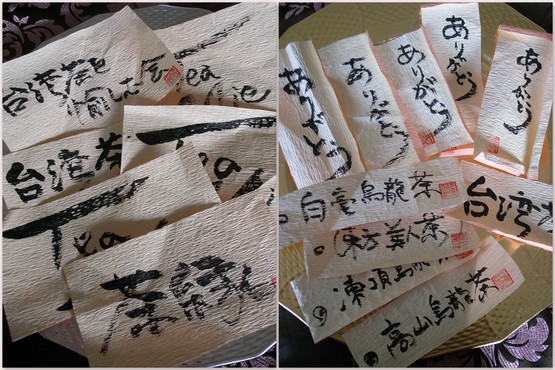 台湾茶を
愉しむ会
台湾茶
Tea
Tea
茶
ありがとう
ありがとう
ありがとう
ありがとう
ありがとう
白毫烏龍茶
東方美人茶
凍頂烏龍茶
高山烏龍茶
台湾